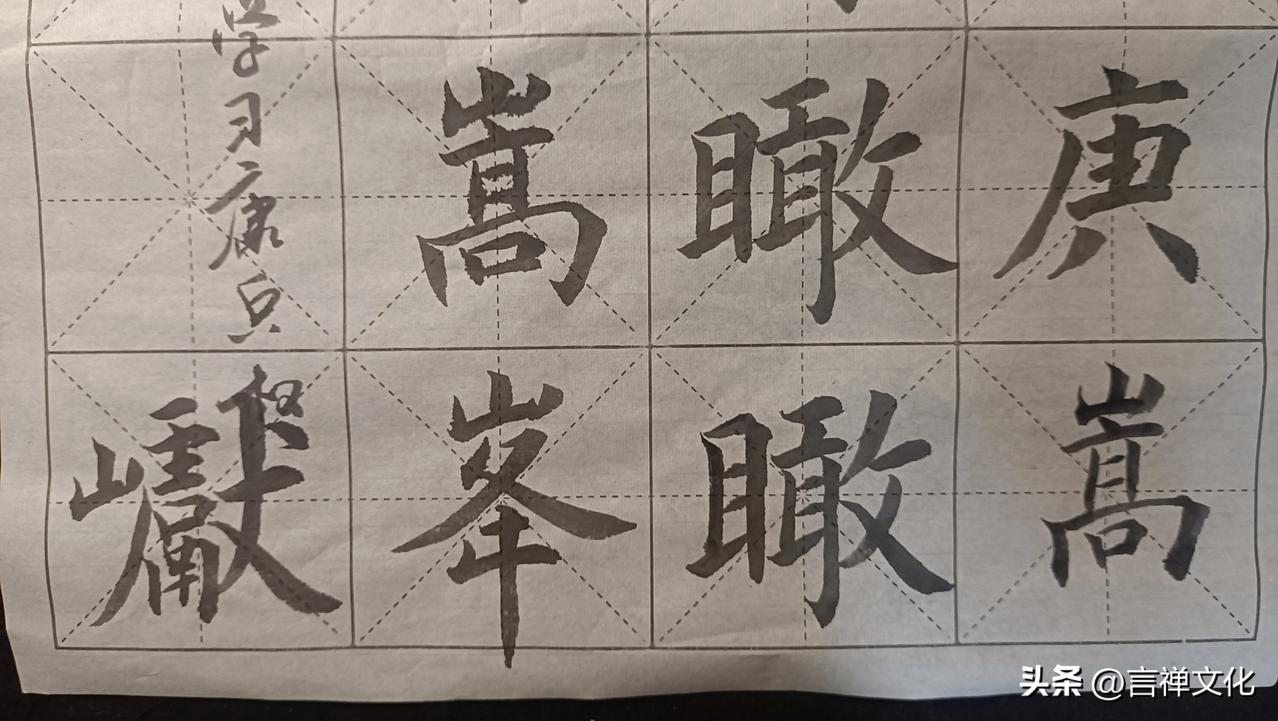 庚嵩
瞰瞰
嵩峯
学习康
巘
头条 @言禅文化